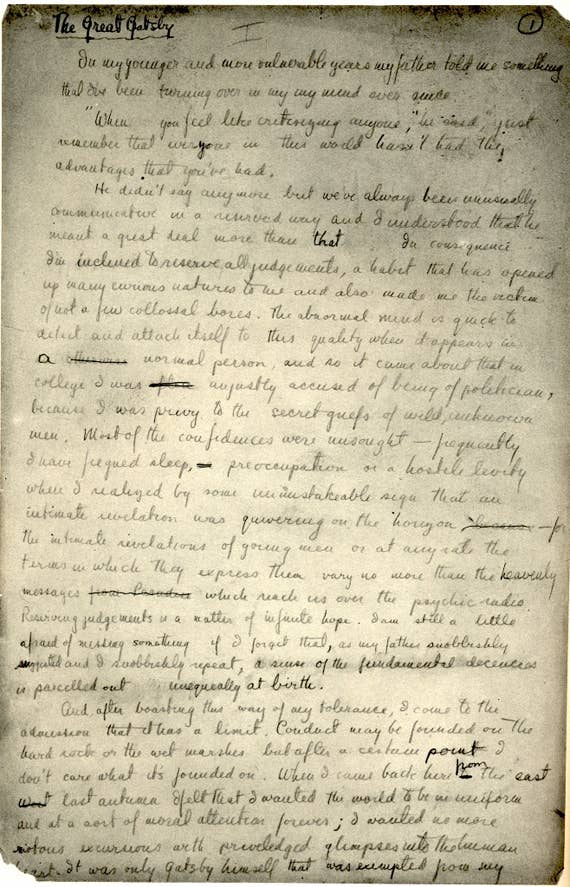 The Great Gatsby
1
I
In my younger and more vulnerable years my father told me something
that I've been turning over in my my mind ever since.
"When you feel like critisizing anyone," he said, "just
remember that everyone in this world hasn't had the
advantages that you've had.
He didn't say anymore but we've always been unusually
communicative in a reserved way and I understood that he
meant a great deal more than that. In consequence
I'm inclined to reserve all judgements, a habit that has opened
up many curious natures to me and also made me the victim
of not a few collossal bores. The abnormal mind is quick to
detect and attach itself to this quality when it appears in
a otherwise normal person, and so it came about that in
college I was unjustly accused of being of politician,
because I was privy to the secret griefs of wild, unknown
men. Most of the confidences were unsought — frequently
I have feigned sleep, preoccupation or a hostile levity
when I realized by some unmistakeable sign that an
intimate revelation was quivering on the horizon — for
the intimate revelations of young men or at any rate the
terms in which they express them vary no more than the heavenly
messages from Paradise which reach us over the psychic radio.
Reserving judgements is a matter of infinite hope. I am still a little
afraid of missing something if I forget that, as my father snobbishly
suggested and I snobbishly repeat, a sense of the fundamental decencies
is parcelled out unequally at birth.
And, after boasting this way of my tolerance, I come to the
admission that it has a limit. Conduct may be founded on the
hard rock or the wet marshes but after a certain point I
don't care what it's founded on. When I came back here from the east
last autumn I felt that I wanted the world to be in uniform
and at a sort of moral attention forever; I wanted no more
riotous excursions with priviledged glimpses into the human
heart. It was only Gatsby himself that was exempted from my